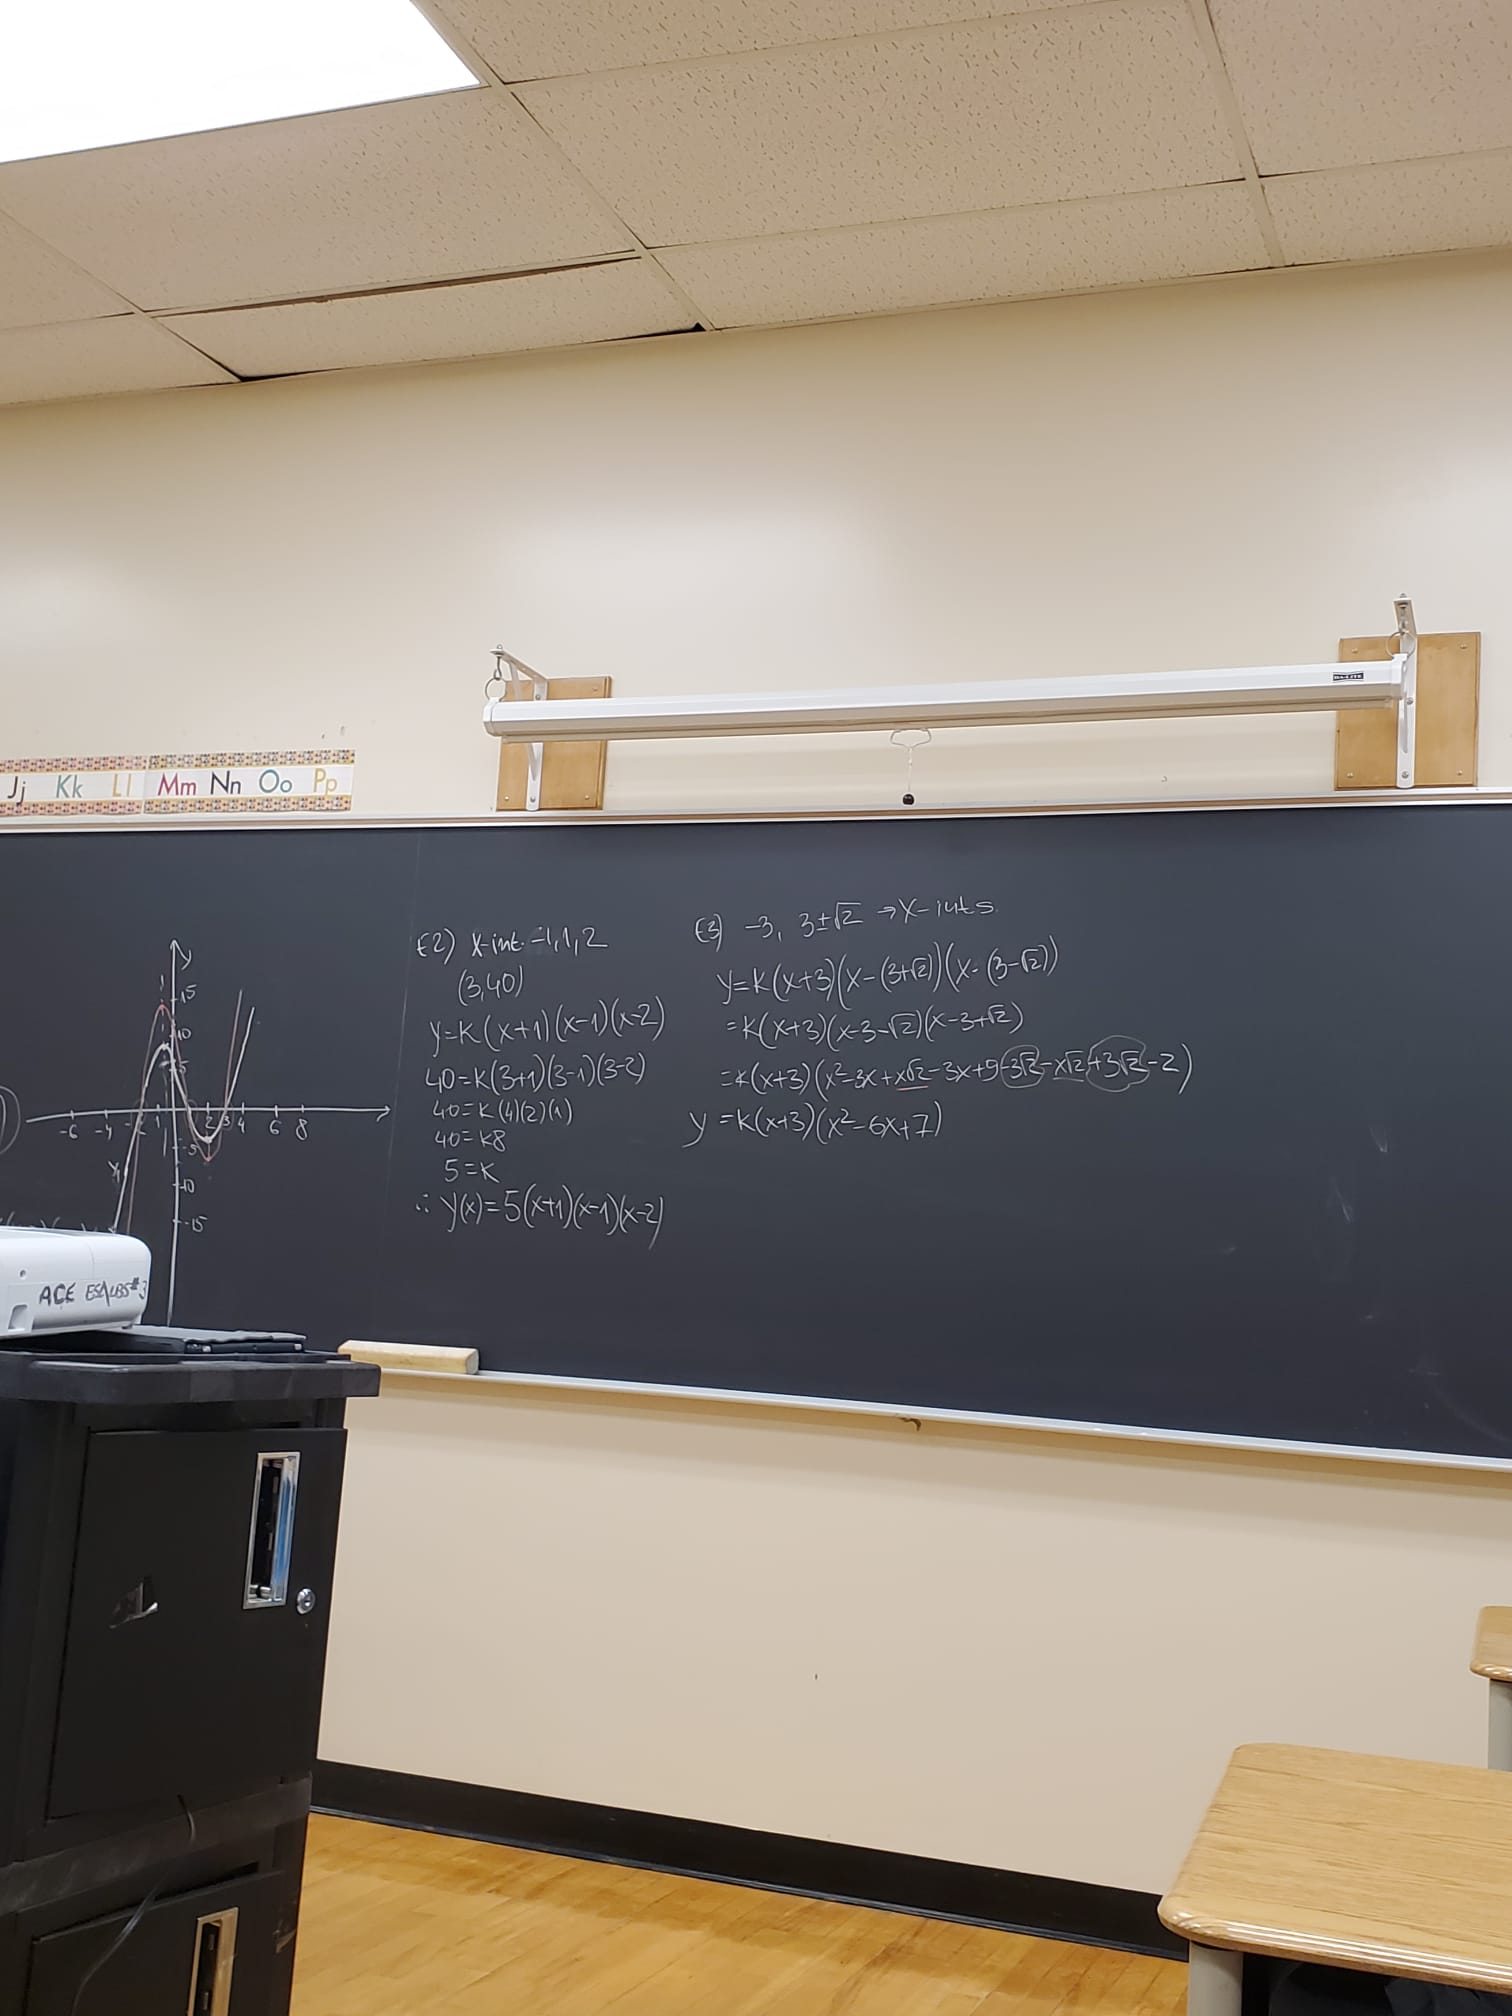 DA-LITE
Jj Kk Ll Mm Nn Oo Pp
y
15
10
5
-6 -4 -2 2 3 4 6 8
-5
-10
-15
y₁
E2) x-int. -1, 1, 2
(3,40)
y=k(x+1)(x-1)(x-2)
40=k(3+1)(3-1)(3-2)
40=k(4)(2)(1)
40=k8
5=k
∴ y(x)=5(x+1)(x-1)(x-2)
E3) -3, 3±√2 → x-ints.
y=k(x+3)(x-(3+√2))(x-(3-√2))
=k(x+3)(x-3-√2)(x-3+√2)
=k(x+3)(x²-3x+x√2-3x+9-3√2-x√2+3√2-2)
y=k(x+3)(x²-6x+7)
ACE ESL/LBS#3